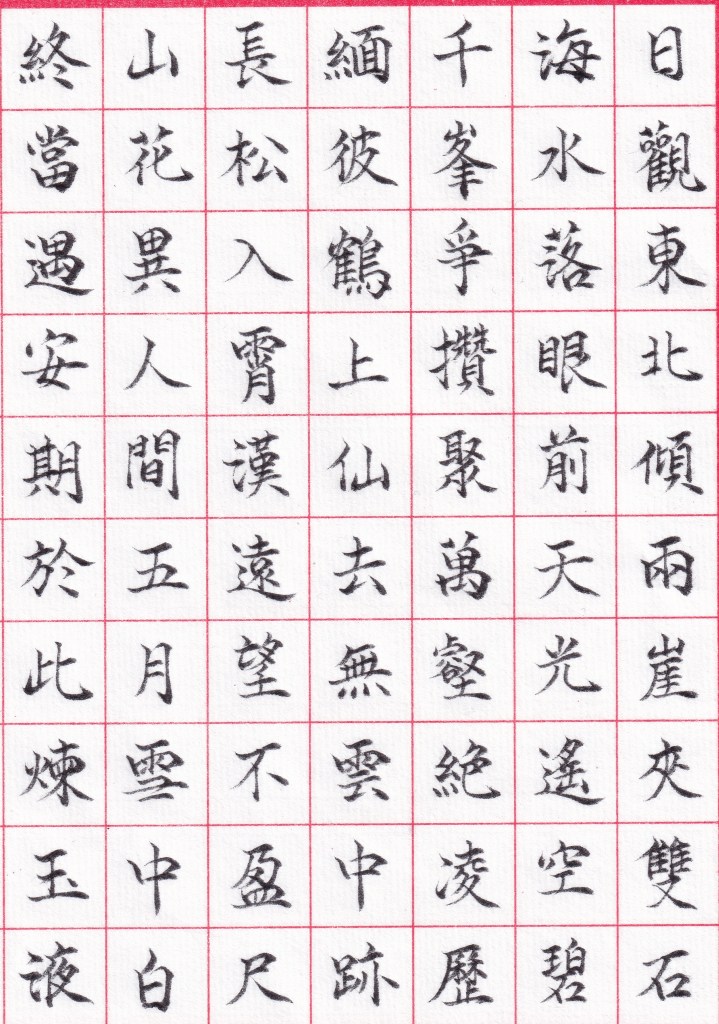 日觀東北傾兩崖夾雙石
海水落眼前天光遙空碧
千峯爭攢聚萬壑絕凌歷
緬彼鶴上仙去無雲中跡
長松入霄漢遠望不盈尺
山花異人間五月雪中白
終當遇安期於此煉玉液